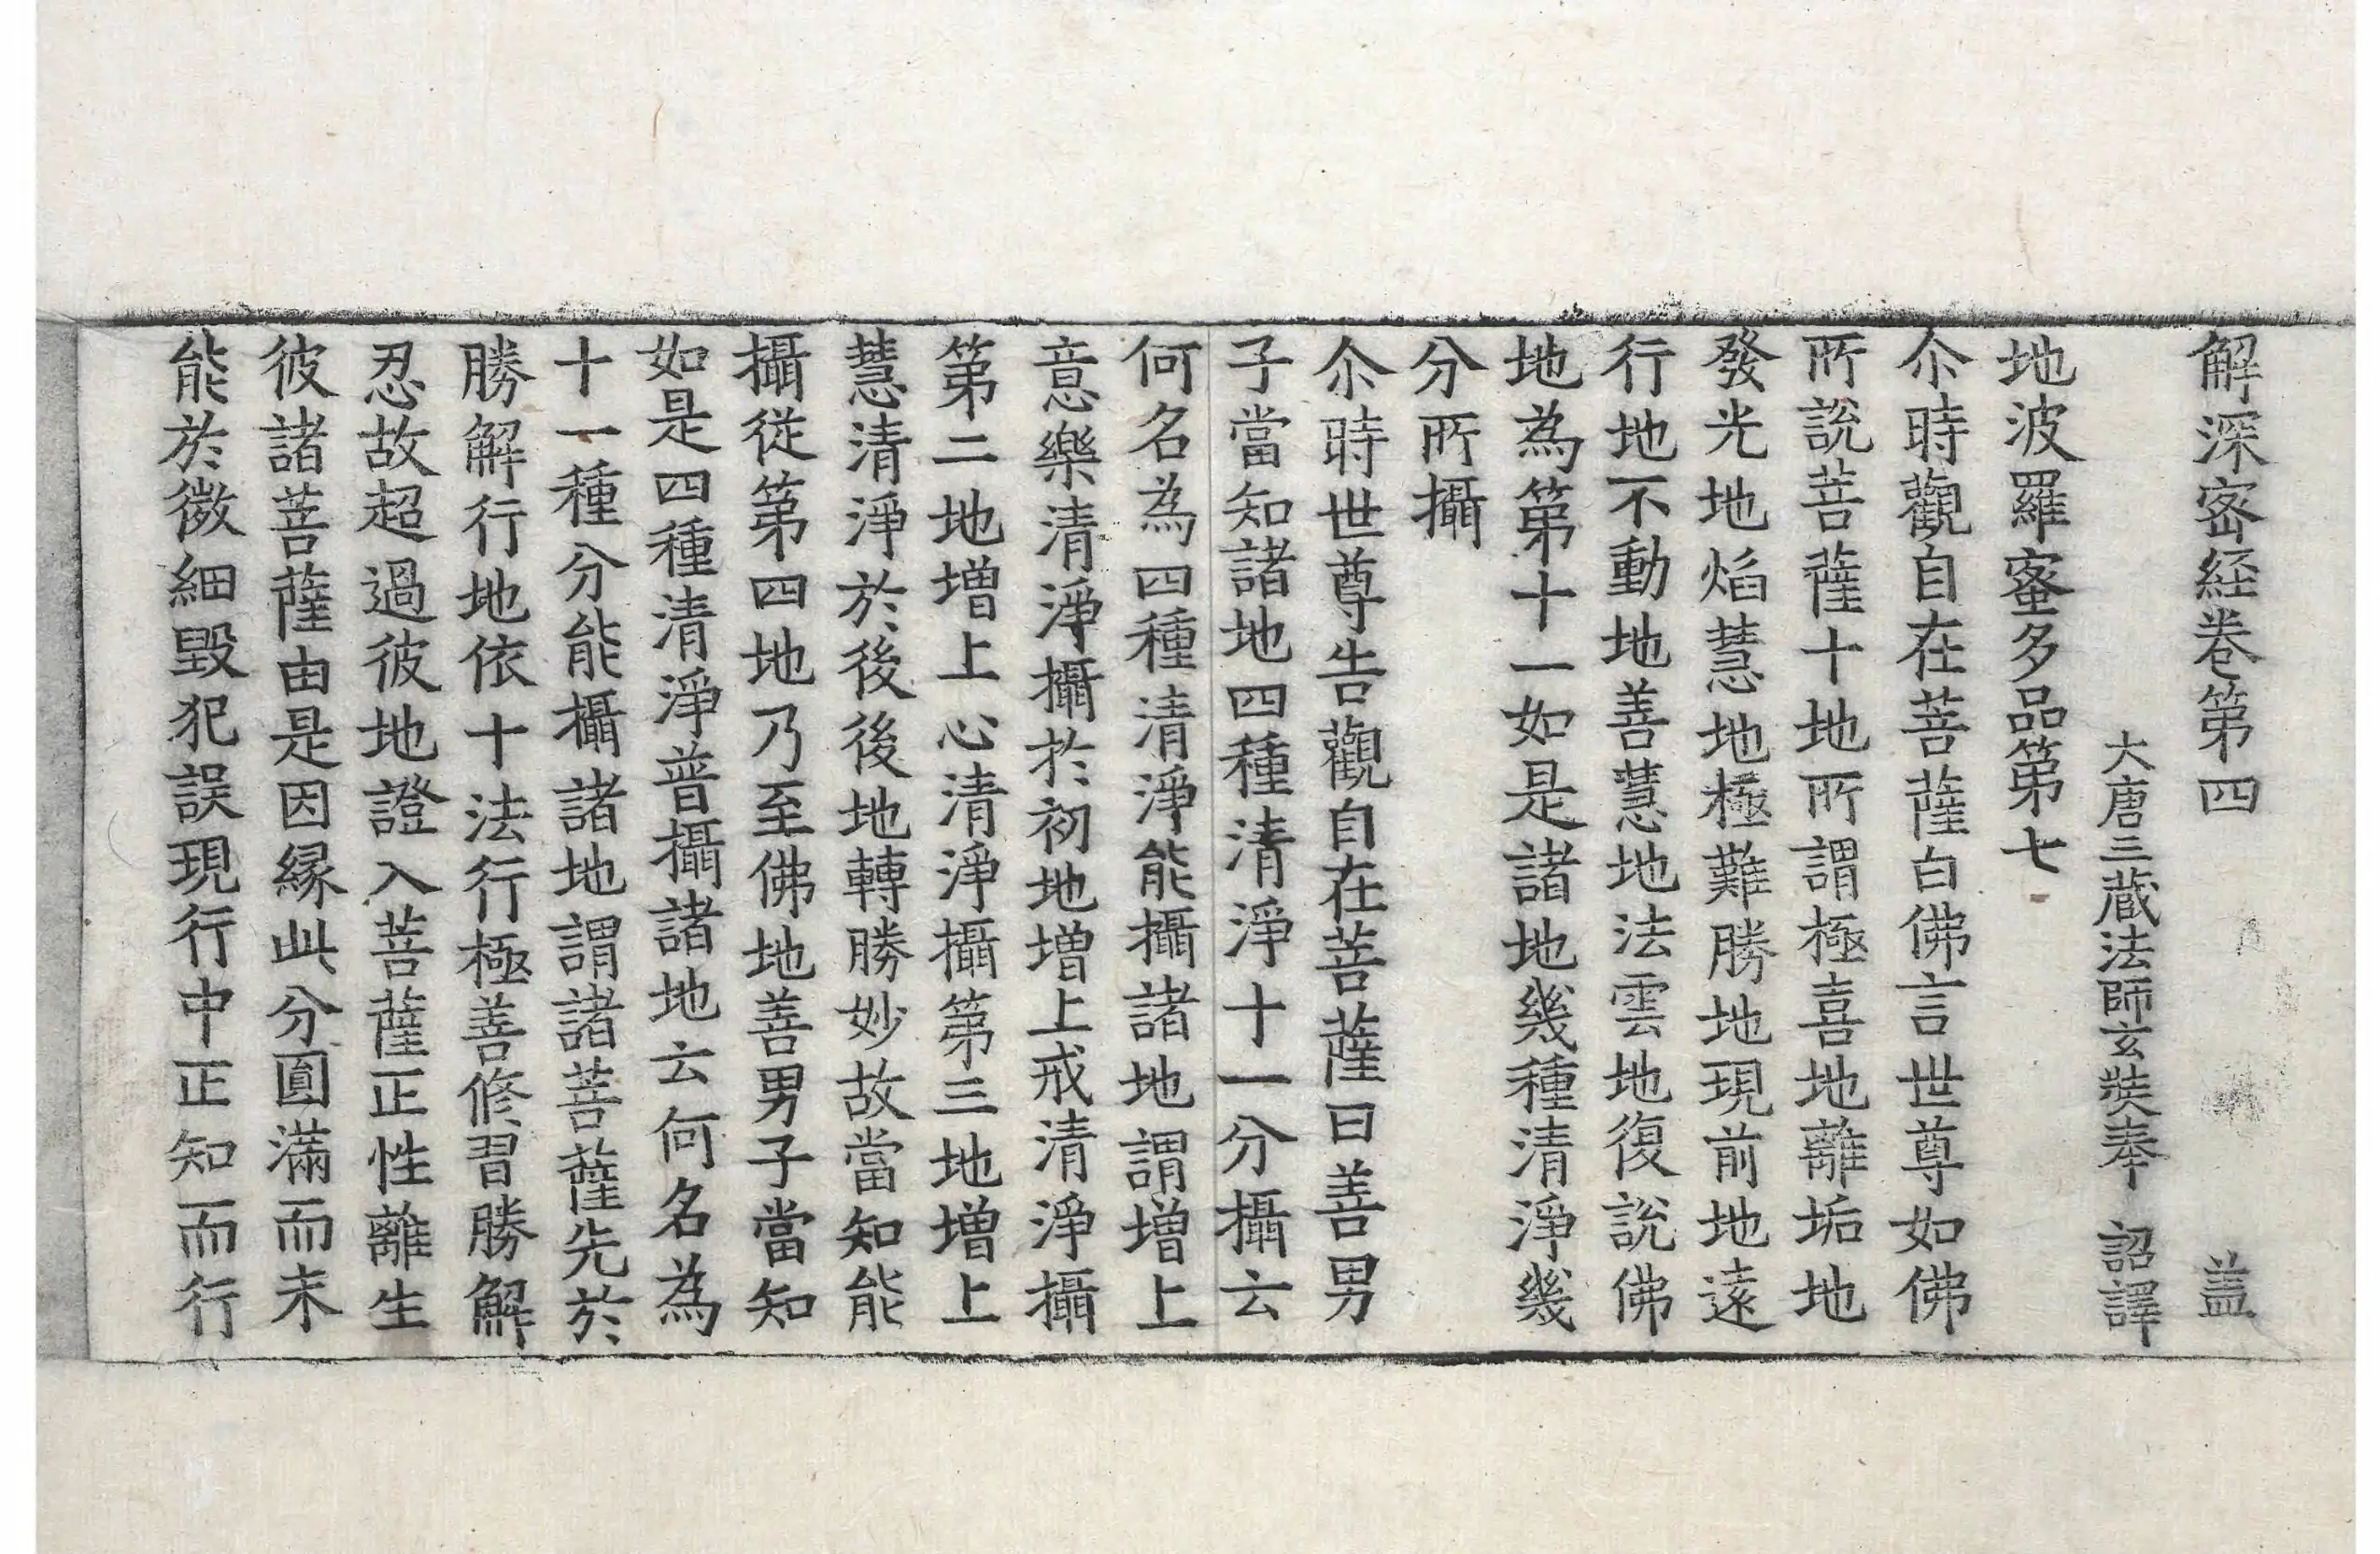 解深密経卷第四 盖
大唐三蔵法師玄奘奉 詔譯
地波羅蜜多品第七
尒時觀自在菩薩白佛言世尊如佛
所說菩薩十地所謂極喜地離垢地
發光地焰慧地極難勝地現前地遠
行地不動地善慧地法雲地復說佛
地為第十一如是諸地幾種清淨幾
分所攝
尒時世尊告觀自在菩薩曰善男
子當知諸地四種清淨十一分攝云
何名為四種清淨能攝諸地謂增上
意樂清淨攝於初地增上戒清淨攝
第二地增上心清淨攝第三地增上
慧清淨於後後地轉勝妙故當知能
攝從第四地乃至佛地善男子當知
如是四種清淨普攝諸地云何名為
十一種分能攝諸地謂諸菩薩先於
勝解行地依十法行極善修習勝解
忍故超過彼地證入菩薩正性離生
彼諸菩薩由是因縁此分圓滿而未
能於微細毀犯誤現行中正知而行